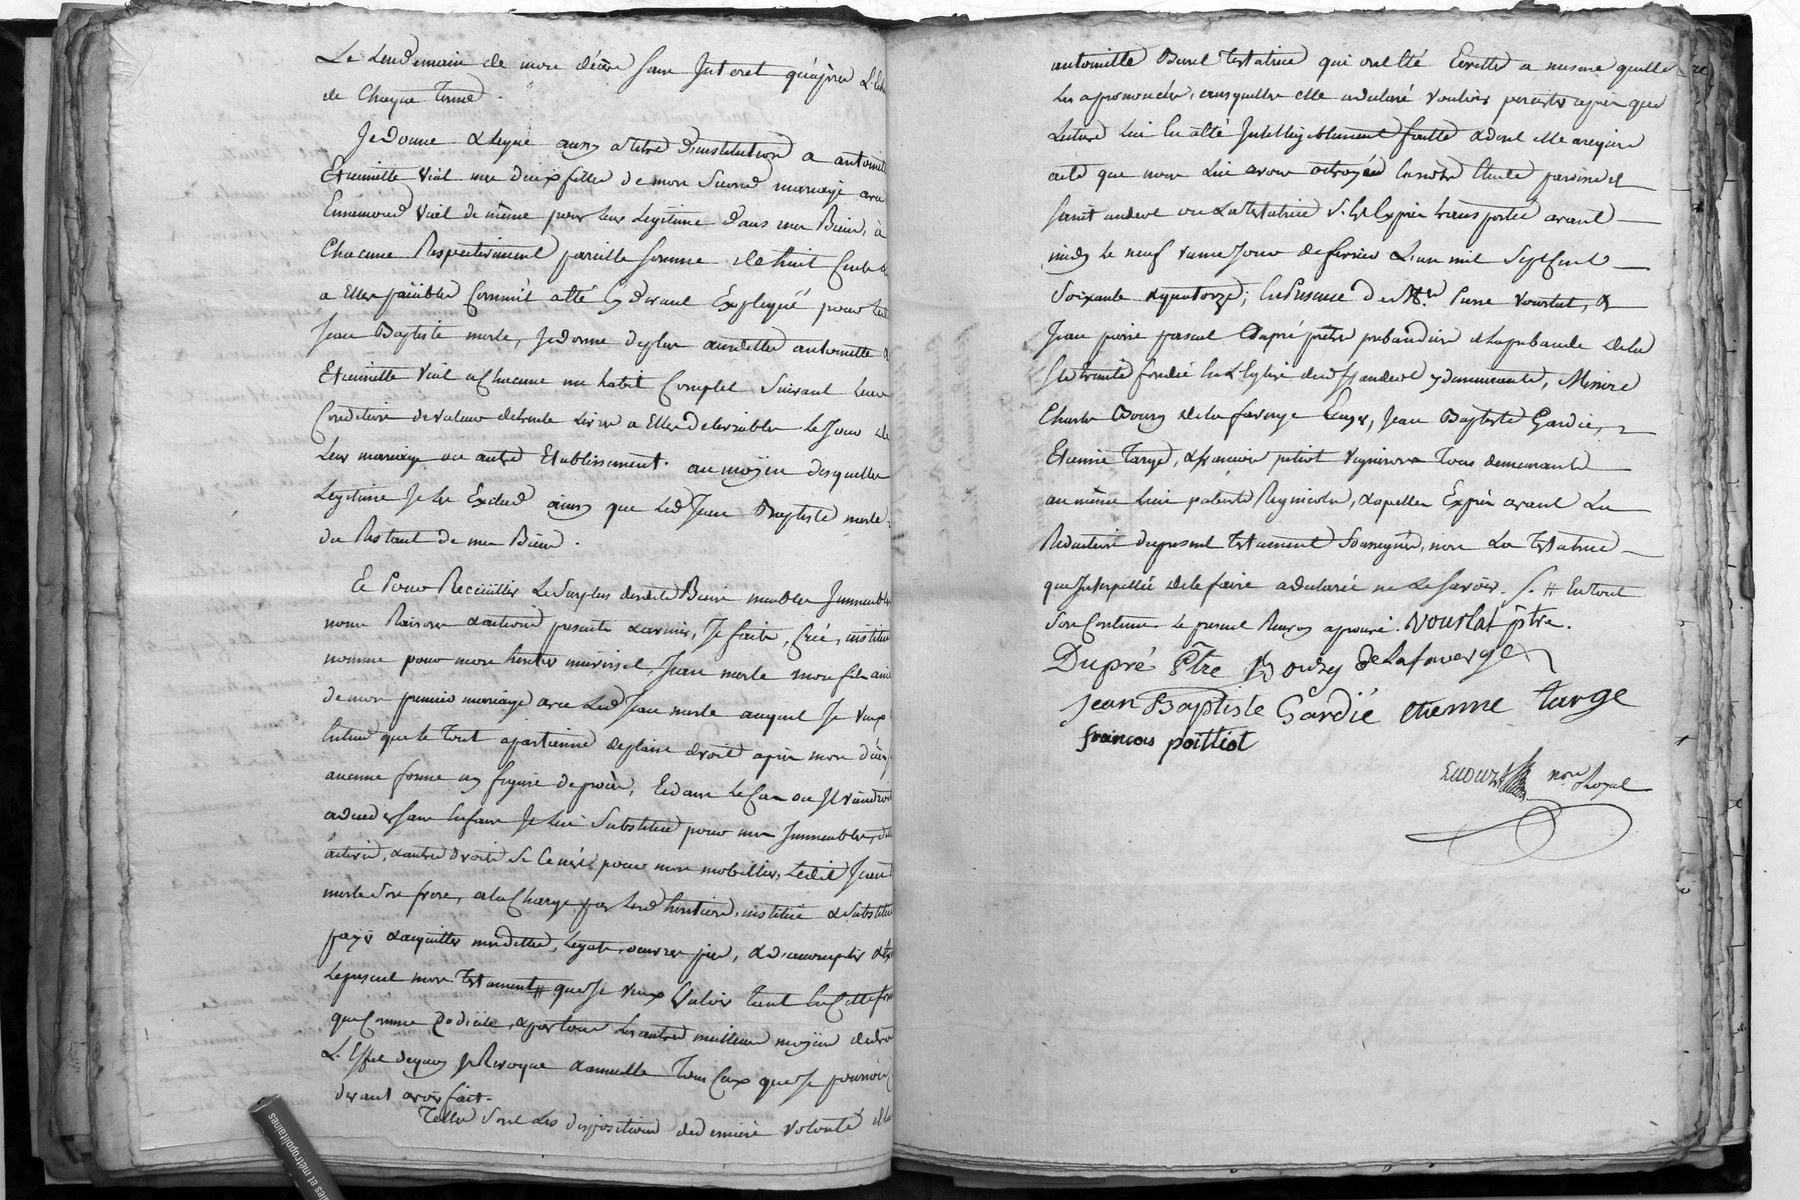 Le Lendemain de mon décès sans Interet qu'apres L'Ech
de Chaque Terme.
Je donne & legue aussy a titre d'institution a antoinette
Etiennette Vial mes deux filles de mon second mariage avec
Ennemond Vial de même pour leur Legitime dans mes Biens, à
Chacune Respectivement pareille somme de huit Cents
a Elles païables Comm'il a été cy devant Expliqué pour led
Jean Baptiste merle, Je donne de plus auxdittes antoinette &
Etiennette Vial a Chacune un habit Complet Suivant leur
Condition de valeur de trente Livres a Elles delivrables le Jour de
Leur mariage ou autre Etablissement. au moÿen desquelles
Legitimes Je les Exclud ainsy que led Jean Baptiste merle
du Restant de mes Biens.
Et Pour Recüeillir Le Surplus desdits Biens meubles Immeubles
noms Raisons & actions presents & avenir, Je faits, Créé, institue
nomme pour mon heritier universel, Jean merle mon fils ainé
de mon premier mariage avec Led Jean merle auquel Je veux
Entend que le Tout apartienne de plaine droit après mon décès
aucune forme ny figure de procès, Et dans le Cas ou Il viendroit
a deceder sans Enfans Je lui Substitue pour mes Immeubles,
actions, & autres droits Si Ce n'est pour mon mobillier, Ledit Jean
merle Son frere, a la Charge par Lesd heritiers, institué & Substitué
païer & acquitter mes dettes, Legats, œuvres pies, & d'accomplir
Le present mon Testament que Je veux Valoir tant En Cette forme
que Comme Codicile, & par tous les autres meilleurs moÿens de droit
L'Effet dequoy Je Revoque & annulle Tous Ceux que Je pourrois
devant avoir fait.
Telles Sont Les dispositions de derniere Volonté de la
antoinette Burel Testatrice qui ont Eté Ecrittes a mesure quelle
Les a prononcées, Ausquelles elle a declaré Vouloir persister après que
Lecture Lui En a été Intelligiblement faitte & dont elle a requis
acte que nous Lui avons octroyé En notre Etude
Saint andeol ou La testatrice S'Est Exprès transportée avant
midy le neuf vieme Jour de fevrier L'an mil Sept Cent
Soixante & quatorze; En Presence de Mre Pierre Vourlat, &
Jean pierre pascal Dupré prêtres prebandier de la prebande de la
Ste trinité fondée En L'Eglise dud St andeol y demeurants, Messire
Charles Bourg de la faverge Ecuyer, Jean Baptiste Gardié,
Etienne Targe, & francois potiot vignerons Tous demeurants
au même Lieu patents Regnicoles, & apellés Exprès avant La
Redaction du present testament Soussignés, non La Testatrice
que Interpellée de le faire a declarée ne Le Savoir. En tout
Son Contenu Le present Renvoy aprouvé. Vourlat ptre.
Dupré Ptre Bourg de Lafaverge
Jean Baptiste Gardié etienne targe
francois poittiot
nore Royal
les et métropolitaines